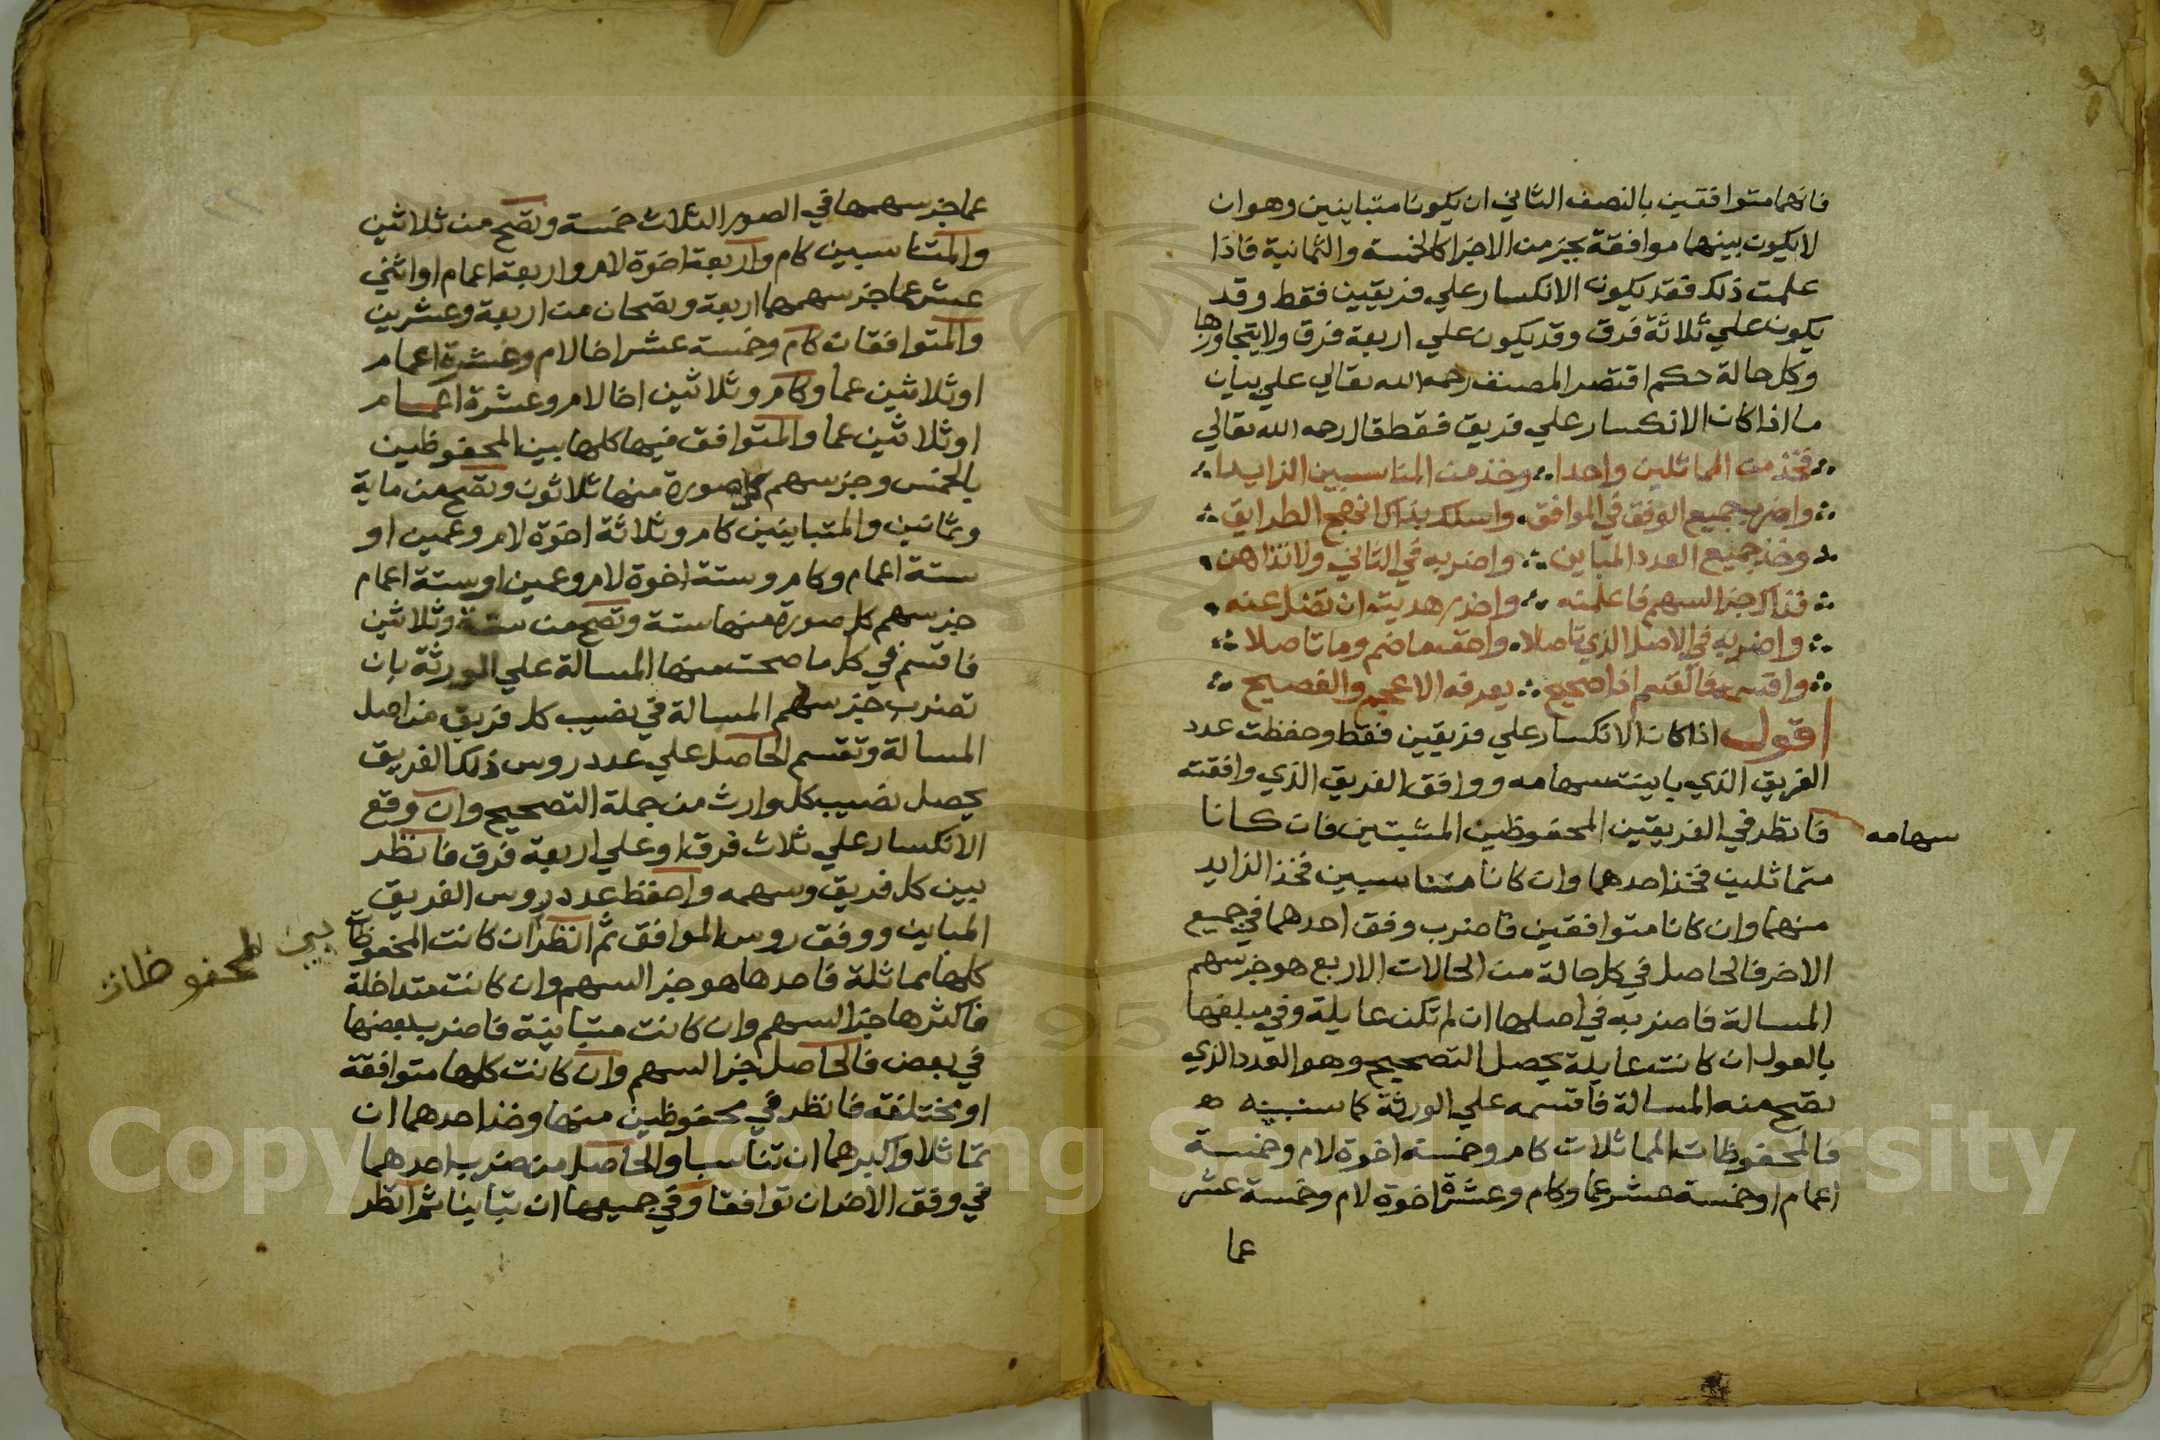 فانهما متوافقين بالنصف الثاني ان يكونا متباينين وهو ان
لا يكون بينهما موافقة بجز من الاجزا كالخمسة والثمانية فاذا
علمت ذلك فقد يكون الانكسار علي فريقين فقط وقد
يكون علي ثلاثة فرق وقد يكون علي اربعة فرق ولا يتجاوزها
وكل حالة حكم اقتصر المصنف رحمه الله تعالي علي بيان
ما اذا كان الانكسار علي فريق فقط قال رحمه الله تعالي
فخذ من المماثلين واحدا وخذ من المناسبين الزايدا
واضرب جميع الوفق في الموافق واسلك بذاك انهج الطرايق
وخذ جميع العدد المباين واضربه في الثاني ولا تداهن
فذاك جز السهم فاعلمنه واحذر هديت ان تضل عنه
واضربه في الاصل الذي تاصلا واحص ما ضم وما تاصلا
واقسمه فالقسم اذا صحيح يعرفه الاعجم والفصيح
اقول اذا كان الانكسار علي فريقين فقط وحفظت عدد
الفريق الذي باينته سهامه ووافق الفريق الذي وافقته
سهامه
فانظر في الفريقين المحفوظين المثبتين فان كانا
متماثلين فخذ احدهما وان كانا متناسبين فخذ الزايد
منهما وان كانا متوافقين فاضرب وفق احدهما في جميع
الاخر فالحاصل في كل حالة من الحالات الاربع هو جز سهم
المسالة فاضربه في اصلها ان لم تكن عايلة وفي مبلغها
بالعول ان كانت عايلة يحصل التصحيح وهو العدد الذي
تصح منه المسالة فاقسمه علي الورثة كما سنبينه ه
فالمحفوظات المماثلات كام وخمسة اخوة لام وخمسة
اعمام او خمسة عشر عما وكام وعشرة اخوة لام وخمسة عشر
عما
عما جز سهمها في الصور الثلاث خمسة وتصح من ثلاثين
والمتناسبين كام واربعة اخوة لام واربعة اعمام او اثني
عشر عما جز سهمها اربعة وتصحان من اربعة وعشرين
والمتوافقات كام وخمسة عشر اخا لام وعشرة اعمام
او ثلاثين عما وكام وثلاثين اخا لام وعشرة اعمام
او ثلاثين عما والمتوافق فيها كلها بين المحفوظين
بالخمس وجز سهم كل صورة منها ثلاثون وتصح من ماية
وثمانين والمتباينين كام وثلاثة اخوة لام وعمين او
ستة اعمام وكام وستة اخوة لام وعمين او ستة اعمام
جز سهم كل صورة منها ستة وتصح من ستة وثلاثين
فاقسم في كل ما صحت منها المسالة علي الورثة بان
تضرب جز سهم المسالة في نصيب كل فريق من اصل
المسالة وتقسم الحاصل علي عدد روس ذلك الفريق
يحصل نصيب كل وارث من جملة التصحيح وان وقع
الانكسار علي ثلاث فرق او علي اربعة فرق فانظر
بين كل فريق وسهمه واحفظ عدد روس الفريق
المباين ووفق روس الموافق ثم انظر ان كانت المحفوظات
كلها مماثلة فاحدها هو جز السهم وان كانت متداخلة
فاكثرها جز السهم وان كانت متباينة فاضرب بعضها
في بعض فالحاصل جز السهم وان كانت كلها متوافقة
او مختلفة فانظر في محفوظين منها وخذ احدهما ان
تماثلا واكبرهما ان تناسبا والحاصل من ضرب احدهما
في وفق الاخر ان توافقا وفي جميعها ان تباينا ثم انظر
بين المحفوظات
Copyright © King Saud University